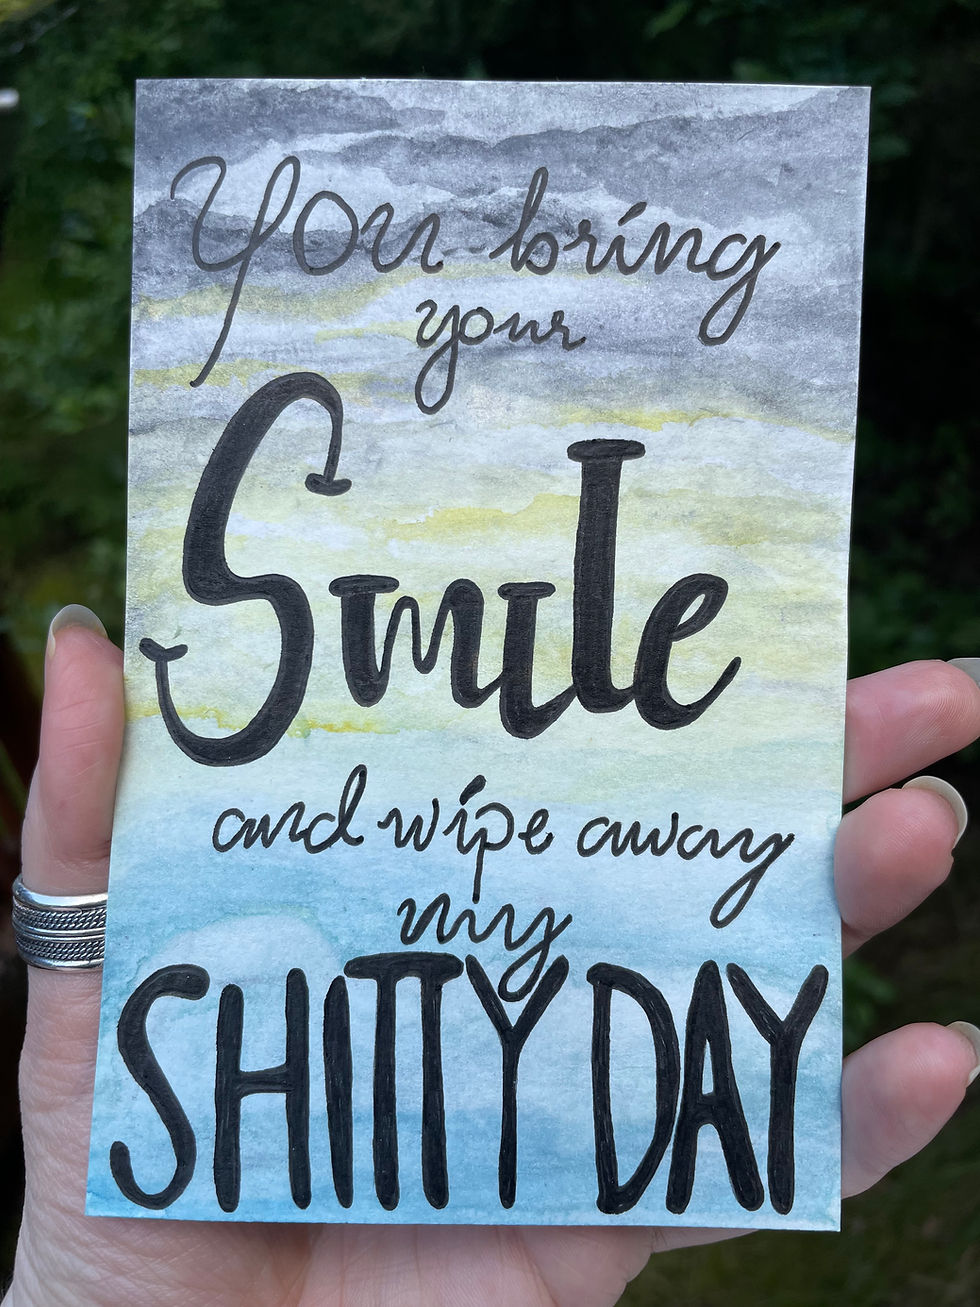 You bring
your
Smile
and wipe away
my
SHITTY DAY